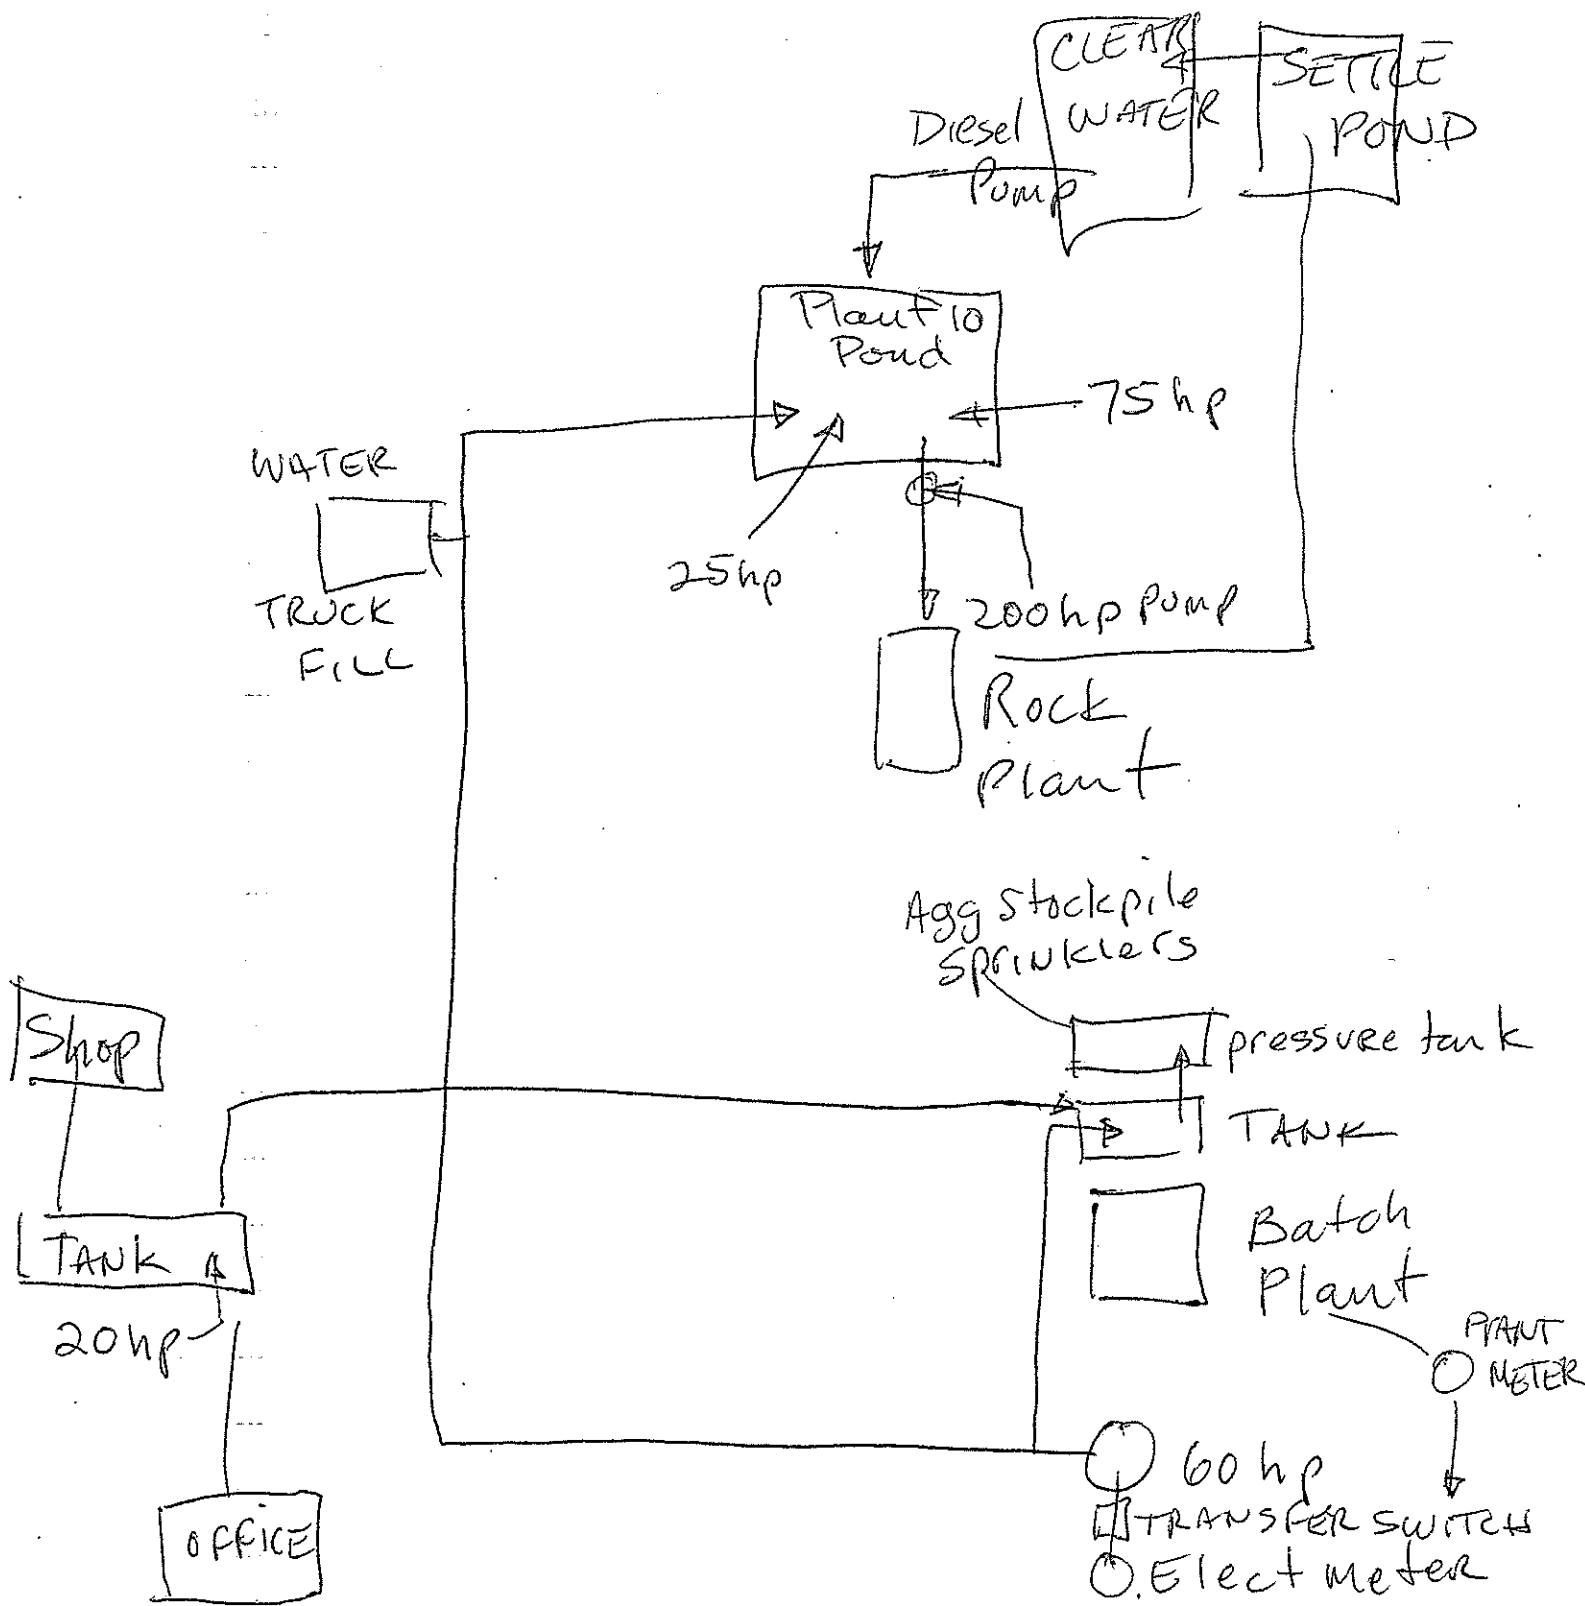 CLEAR
WATER
SETTLE
POND
Diesel
Pump
Plant 10
Pond
75 hp
WATER
TRUCK
FILL
25 hp
200 hp Pump
Rock
Plant
Agg Stockpile
Sprinklers
pressure tank
TANK
Batch
Plant
PLANT
METER
Shop
TANK
20 hp
OFFICE
60 hp
TRANSFER SWITCH
Elect meter